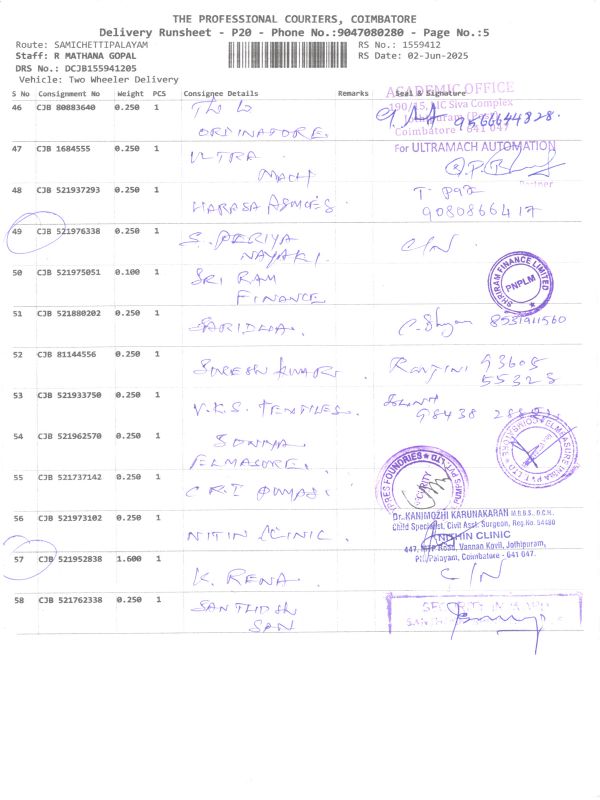 THE PROFESSIONAL COURIERS, COIMBATORE
Delivery Runsheet - P20 - Phone No.:9047080280 - Page No.:5
Route: SAMICHETTIPALAYAM
RS No.: 1559412
Staff: R MATHANA GOPAL
RS Date: 02-Jun-2025
DRS No.: DCJB155941205
Vehicle: Two Wheeler Delivery
S No Consignment No Weight PCS Consignee Details Remarks Seal & Signature
ACADEMIC OFFICE
46 CJB 80883640 0.250 1
190/15, MC Siva Complex
Coimbatore - 641 047
47 CJB 1684555 0.250 1 ULTRA
For ULTRAMACH AUTOMATION
MACH
Partner
48 CJB 521937293 0.250 1
9080866417
49 CJB 521976338 0.250 1 S. PERIYA C/N
NAYAKI.
50 CJB 521975051 0.100 1 SRI RAM
FINANCE
SHRIRAM FINANCE LIMITED
PNPLM
51 CJB 521880202 0.250 1
52 CJB 81144556 0.250 1 SURESH KUMAR 93605
55328
53 CJB 521933750 0.250 1 V.K.S. TEXTILES.
54 CJB 521962570 0.250 1
55 CJB 521737142 0.250 1 C.R.I PUMPS.
SECURITY
56 CJB 521973102 0.250 1 NITIN CLINIC.
Dr. KANIMOZHI KARUNAKARAN M.B.B.S. D.C.H.
Child Specialist, Civil Asst. Surgeon, Reg.No. 54480
NISHIN CLINIC
447, MTP Road, Vannan Kovil, Jothipuram,
Coimbatore - 641 047.
57 CJB 521952838 1.600 1 K. RENA. C/N
58 CJB 521762338 0.250 1 SANTHOSH
SAN